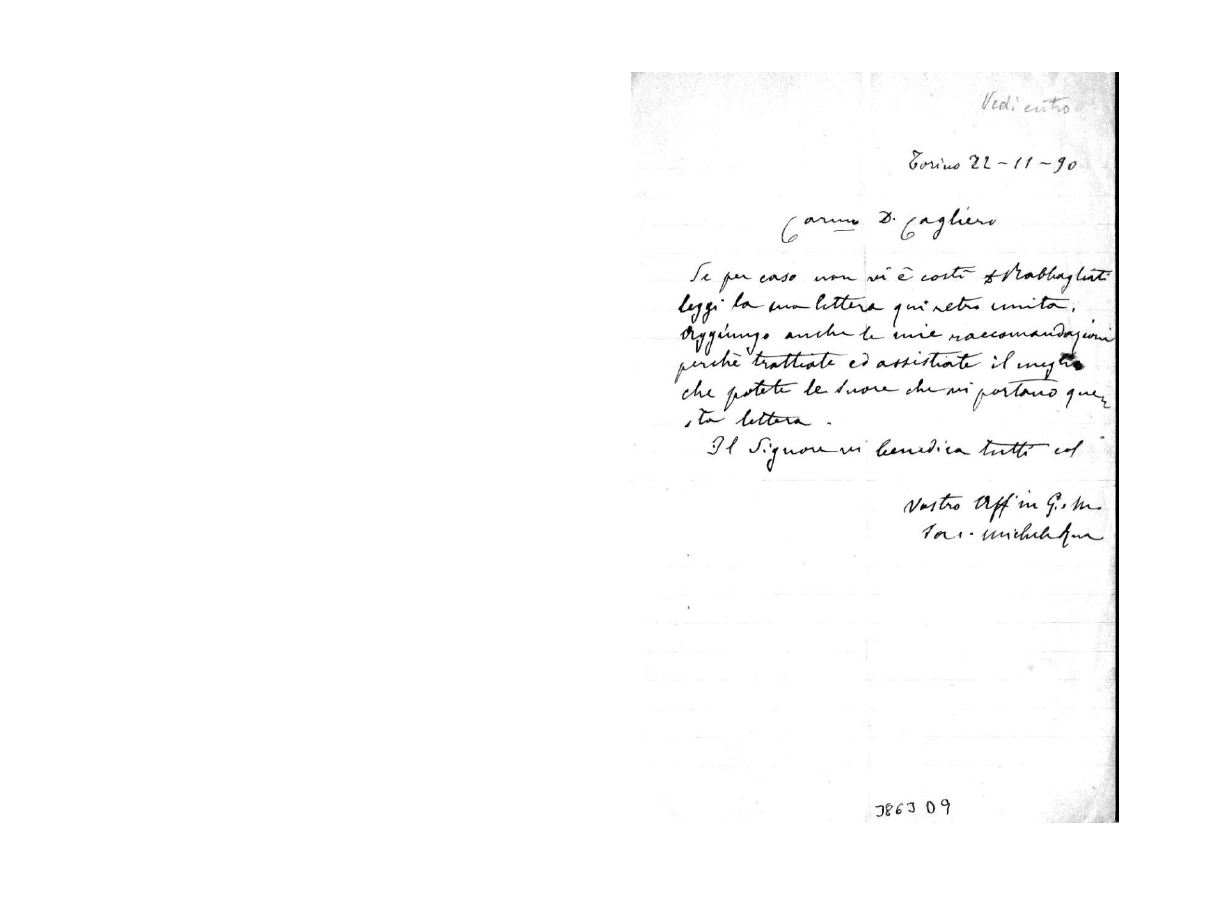 Vedi entro
Torino 22-11-90
Carmo D. Cagliero
Se per caso non vi è costì D Rabbagliati
leggi la sua lettera qui retro unita.
Aggiungo anche le mie raccomandazioni
perchè trattiate ed assistiate il meglio
che potete le Suore che vi portano que=
sta lettera.
Il Signore vi benedica tutti col
Vostro Aff in G. e M.
Sac. Michele Rua
3863 D9